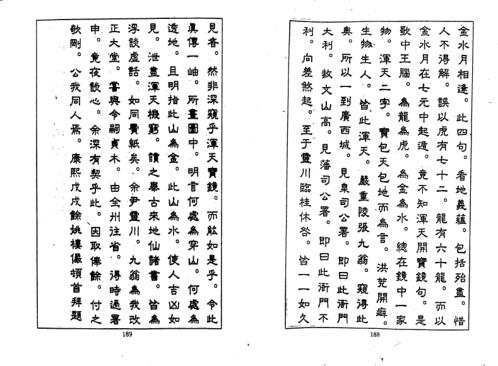 金水月相逢。此四句。看地義蘊。包括殆盡。惜
人不得解。誤以虎有七十二。龍有六十龍。而以
金水月在七元中起遁。竟不知渾天開寶鏡句。是
歌中王腦。為龍為虎。為金為水。總在鏡中一家
物。渾天二字。實包天包地而為言。洪荒開癖。
生物生人。皆此渾天。嚴重陵張九翁。窺得此
奧。所以一到廣西城。見臬司公署。即曰此衙門
大利。敕文山高。見藩司公署。即曰此衙門不
利。向差煞起。至于靈川臨桂休咎。皆一一如久
188
見者。然非深窺乎渾天寶鏡。而能如是乎。今此
真傳一岫。所畫圖中。明言何處為穿山。何處為
透地。且明指此山為金。此山為水。使人吉凶如
見。泄盡渾天機竅。讀之舉古來地仙諸書。皆為
浮談虛話。如同費紙矣。余尹靈川。九翁為我改
正大堂。嘗與令嗣貞木。由全州往省。得時過署
中。竟夜談心。余深有契乎此。因取傳餘。付之
歌剛。公我同人焉。康熙戊戌餘姚樓儼頓首拜題
189